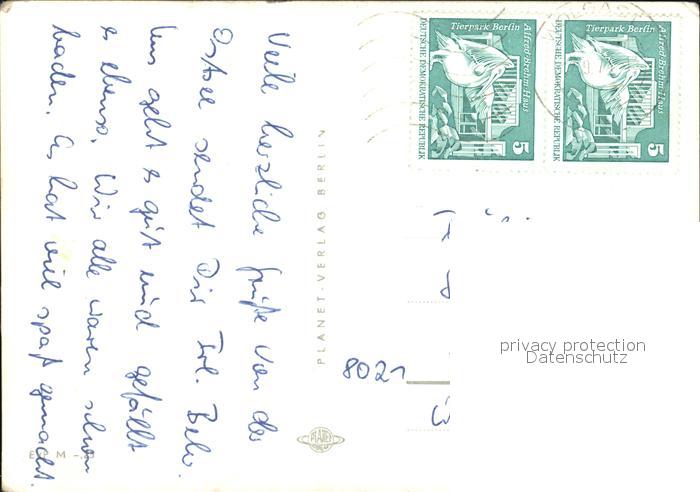 Viele herzliche Grüße von der
Ostsee sendet Dir Frl. Behr.
Uns geht es gut und gefällt
es ebenso. Wir alle waren schon
baden. Es hat viel spaß gemacht.
PLANET-VERLAG BERLIN
PLANET
M
8021
Tierpark Berlin
Alfred-Brehm-Haus
DEUTSCHE DEMOKRATISCHE REPUBLIK
5
Tierpark Berlin
Alfred-Brehm-Haus
DEUTSCHE DEMOKRATISCHE REPUBLIK
5
privacy protection
Datenschutz